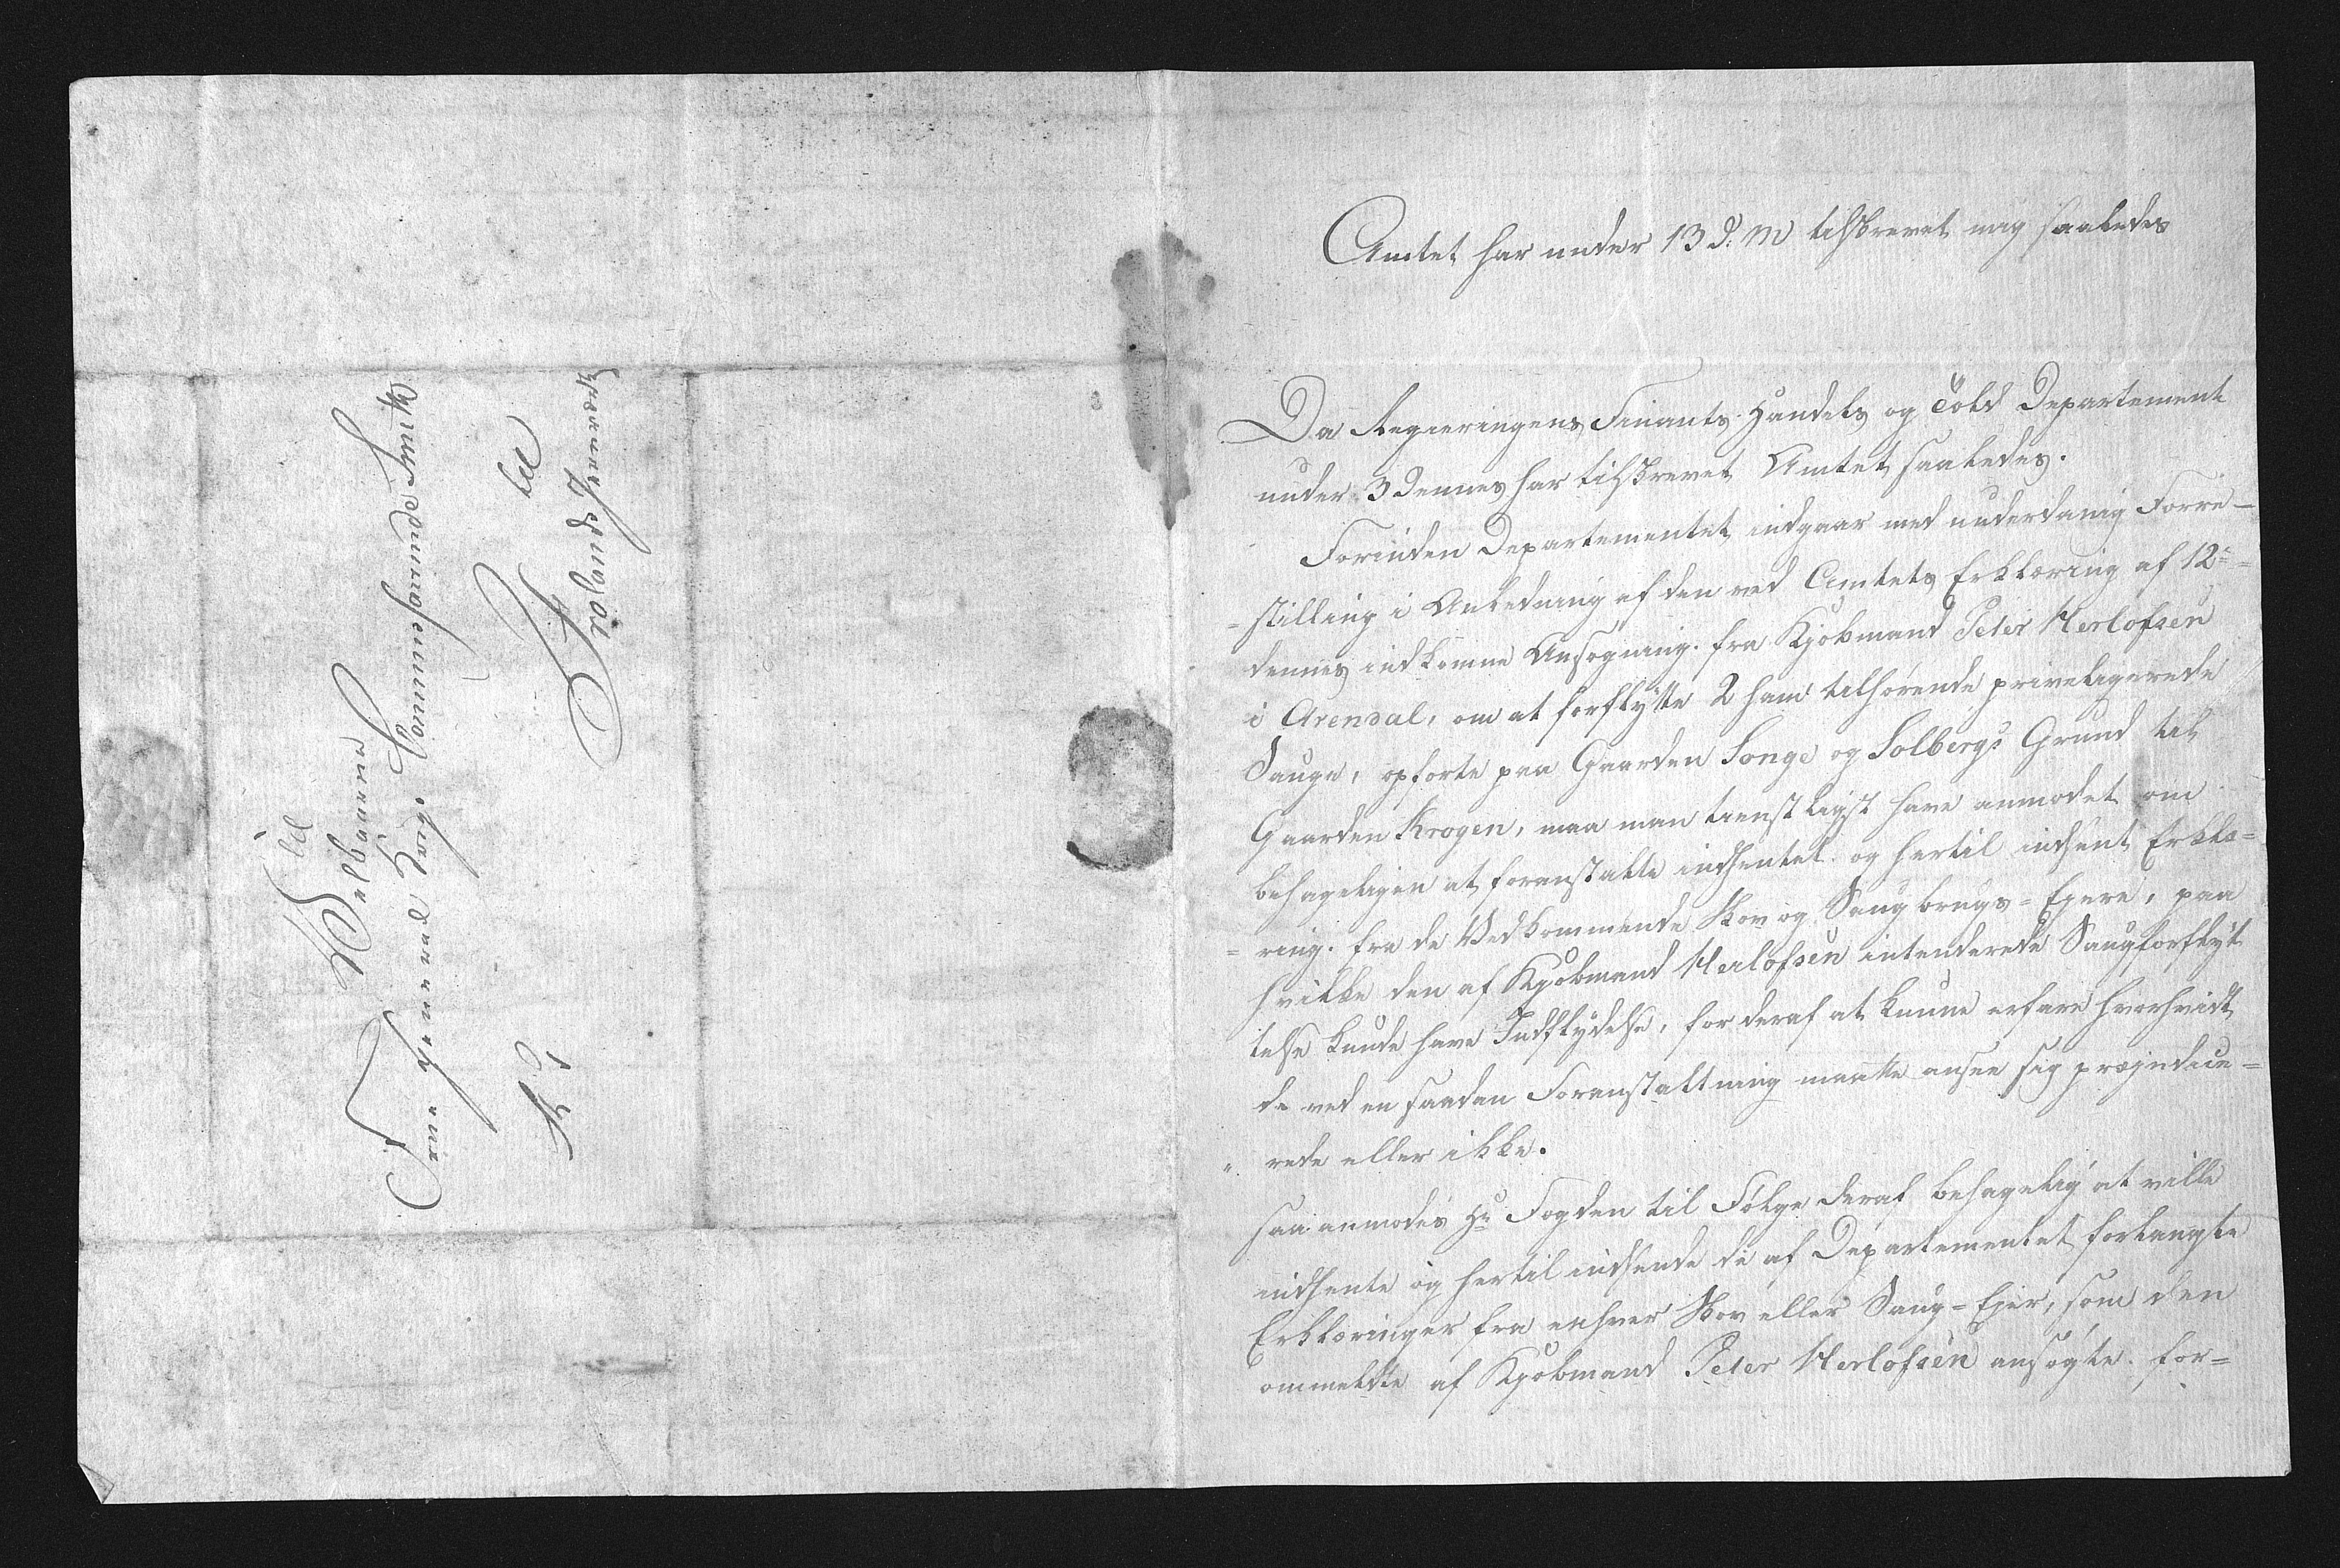 Til
Velbaarne
Frue General Krigs Commissairinde Smith
til
Frolands Jernværk
K. T.
Amtet har under 13 d: M tilskrevet mig saaledes
Da Regieringens Finants Handels og Told Departement
under 3 Dennes har tilskrevet Amtet saaledes.
Forinden Departementet indgaar med underdanig Forre-
-stilling i Anledning af den ved Amtets Erklæring af 12=
dennes indkomne Ansøgning fra Kjøbmand Peter Herlofsen
i Arendal, om at forflytte 2 ham tilhørende priveligerede
Sauge, opførte paa Gaarden Songe og Solbergs Grund til
Gaarden Krogen, maa man tienstligst have anmodet om
behageligen at foranstalte indhentet og hertil indsent Erklæ=
= ring fra de Vedkommende Skov og Saugbrugs=Ejere, paa
hvilke den af Kjøbmand Herlofsen intenderede Saugforflyt
telse kunde have Indflydelse, for deraf at kunne erfare hvorhvidt
de ved en saadan Foranstaltning maatte ansee sig præjudice=
" rede eller ikke.
saa anmodes Hr Fogden til Følge deraf behagelig at ville
indhente og hertil indsende de af Departementet forlangte
Erklæringer fra enhver Skov eller Saug=Ejer, som den
ommeldte af Kjøbmand Peter Herlofsen ansøgte for=